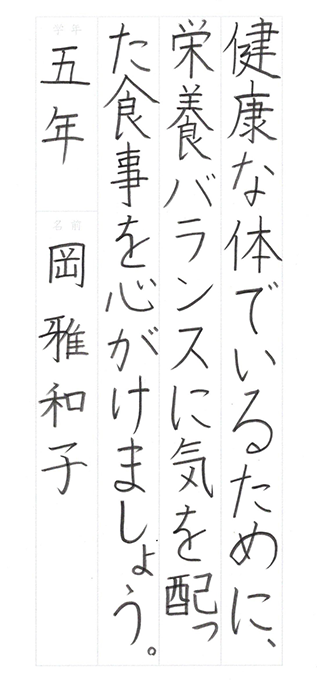 健康な体でいるために、
栄養バランスに気を配っ
た食事を心がけましょう。
学年
五年
名前
岡雅和子